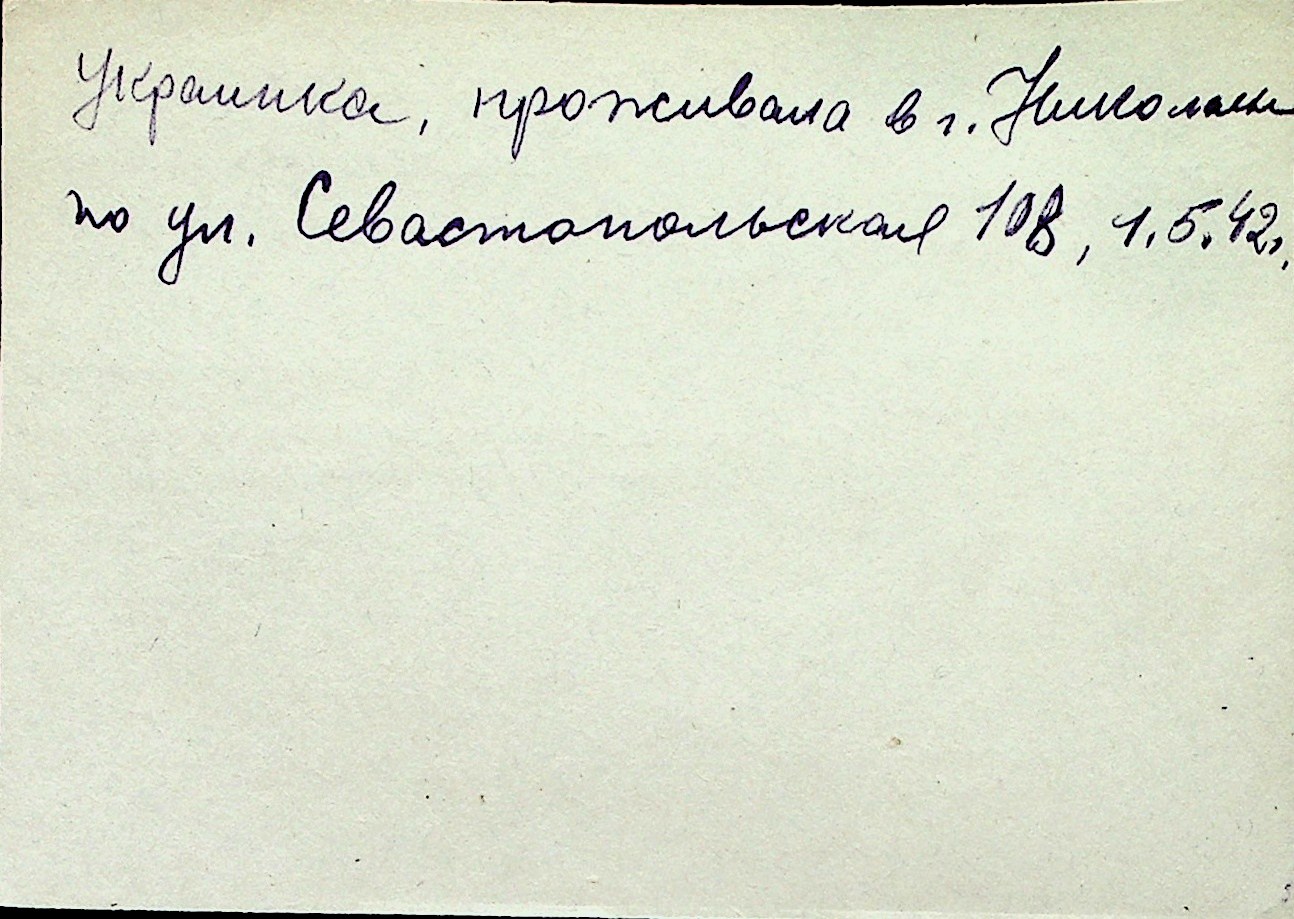 Украинка, проживала в г. Николаев
по ул. Севастопольская 108, 1.5.42г.